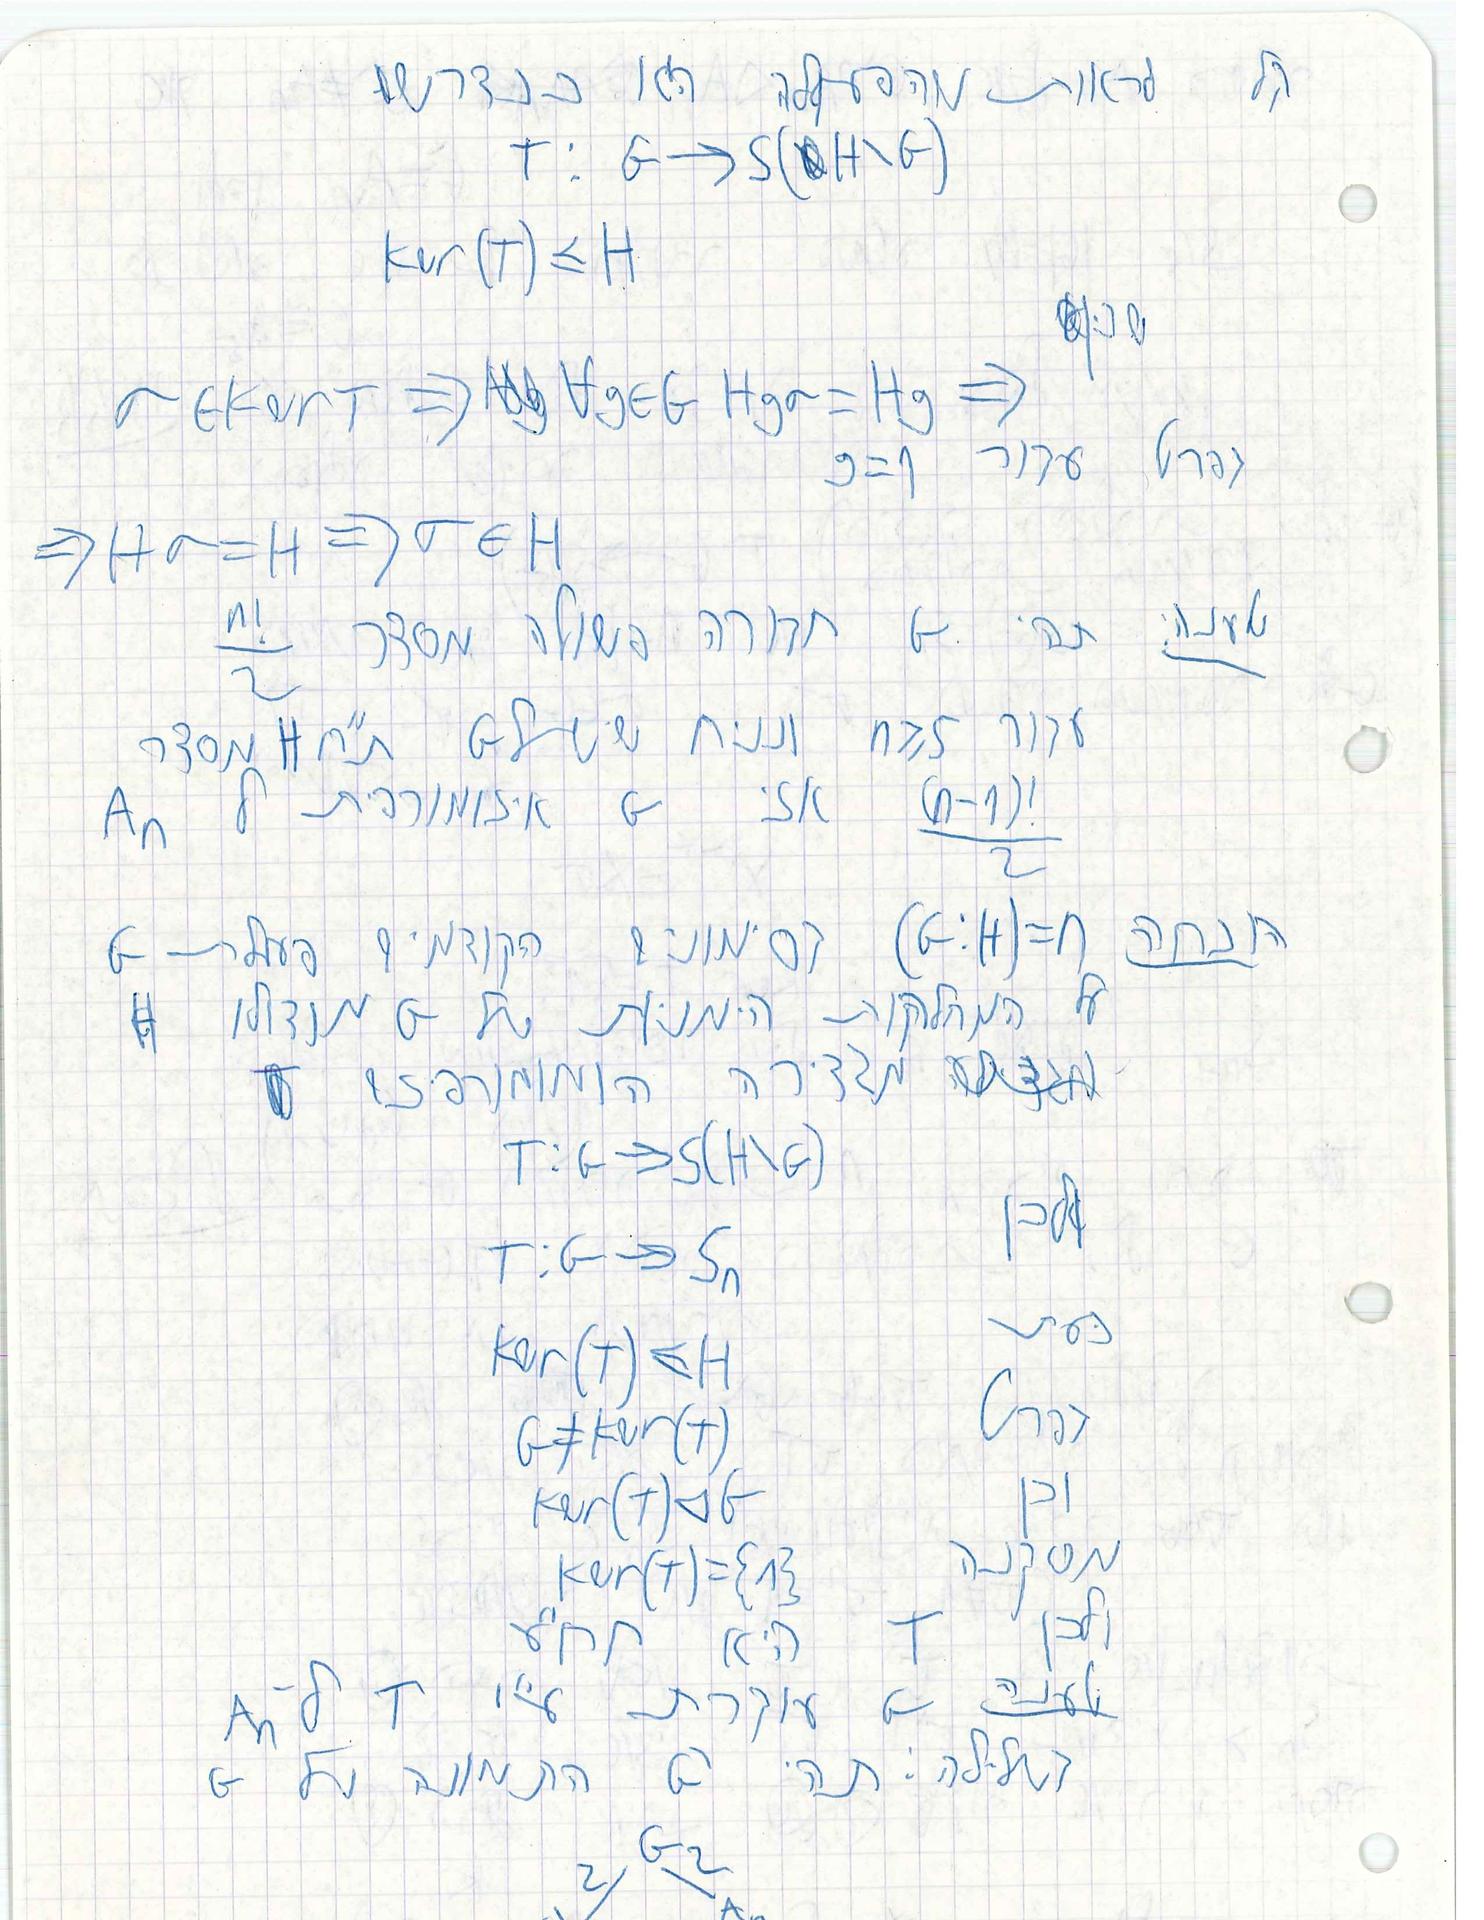 קל לראות שהפעולה הזו כנדרש
T: G → S(H\G)
ker(T) ≤ H
שכן
σ ∈ ker T ⇒ ∀g∈G Hgσ = Hg ⇒
בפרט עבור g=1
⇒ Hσ = H ⇒ σ ∈ H
טענה: תהי G חבורה פשוטה מסדר n!/2
עבור n≥5 ונניח שיש ל G ת"ח H מסדר
(n-1)!/2 אזי G איזומורפית ל A_n
הוכחה (G:H)=n בסימונים הקודמים פועלת G
על המחלקות הימניות של G מודולו H
מגדירה הומומורפיזם
T: G → S(H\G)
ולכן
T: G → S_n
כעת
ker(T) ≤ H
בפרט
G ≠ ker(T)
וכן
ker(T) ◁ G
מסקנה
ker(T) = {1}
ולכן T היא חח"ע
טענה G עוברת ע"י T ל-A_n
בשלילה: תהי G התמונה של G
G
2 2
A_n